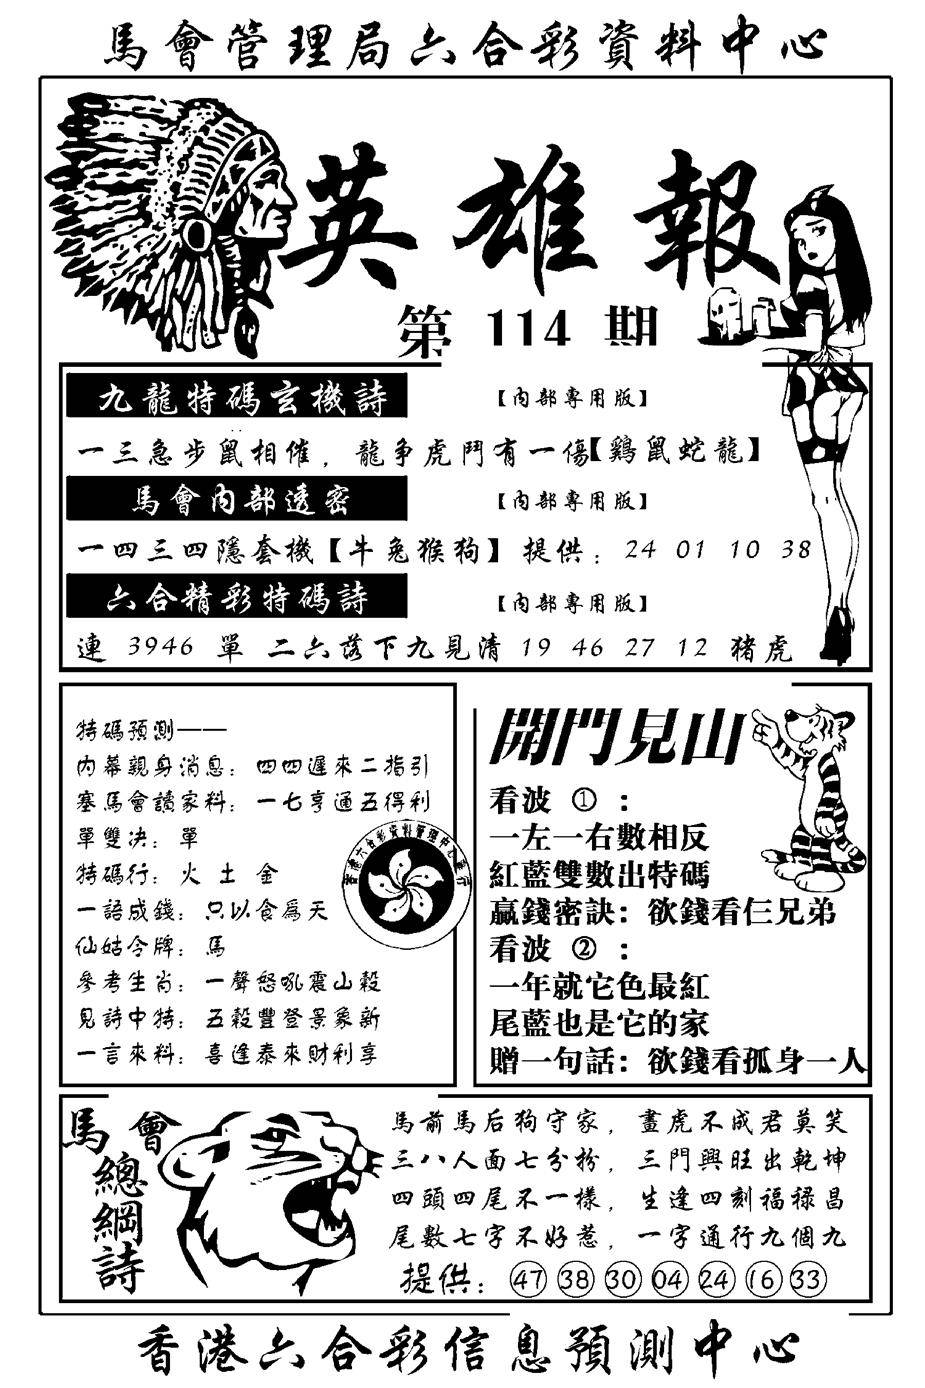 馬會管理局六合彩資料中心
英雄報
第 114 期
九龍特碼玄機詩 【內部專用版】
一三急步鼠相催，龍争虎鬥有一傷【鷄鼠蛇龍】
馬會內部透密 【內部專用版】
一四三四隱套機【牛兔猴狗】 提供：24 01 10 38
六合精彩特碼詩 【內部專用版】
連 3946 單 二六落下九見清 19 46 27 12 猪虎
特碼預測——
內幕親身消息：四四遲來二指引
塞馬會讀家料：一七亨通五得利
單雙决：單
特碼行：火 土 金
一語成錢：只以食爲天
仙姑令牌：馬
參考生肖：一聲怒吼震山穀
見詩中特：五穀豐登景象新
一言來料：喜逢泰來財利享
開門見山
看波 ①：
一左一右數相反
紅藍雙數出特碼
贏錢密訣：欲錢看仨兄弟
看波 ②：
一年就它色最紅
尾藍也是它的家
贈一句話：欲錢看孤身一人
馬會
總綱詩
馬前馬后狗守家，畫虎不成君莫笑
三八人面七分扮，三門興旺出乾坤
四頭四尾不一樣，生逢四刻福禄昌
尾數七字不好惹，一字通行九個九
提供：㊼ ㊳ ㉚ 04 ㉔ ⑯ ㉝
香港六合彩信息預測中心